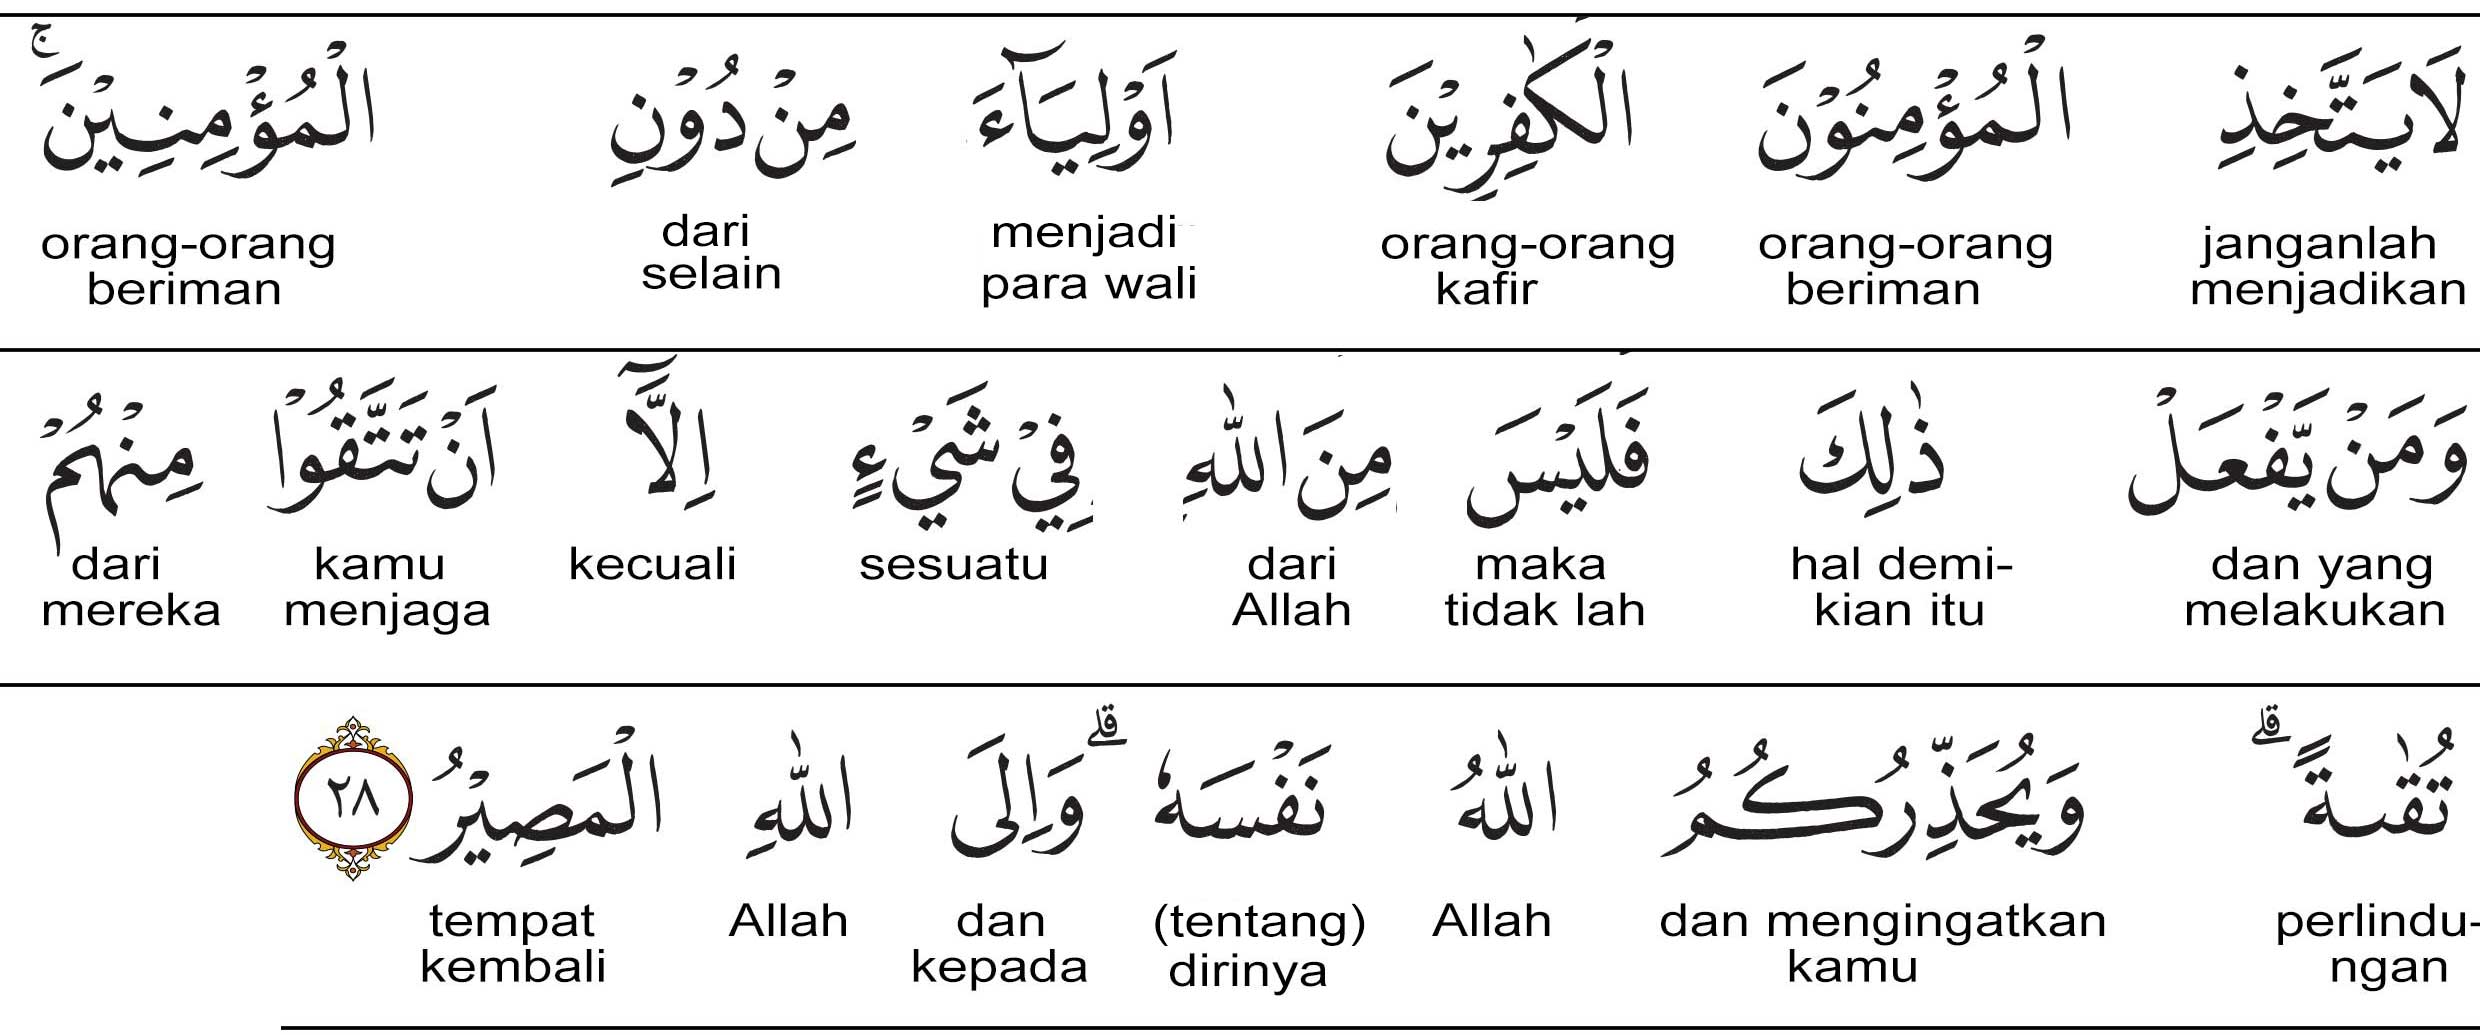 لَا يَتَّخِذِ الْمُؤْمِنُوْنَ الْكٰفِرِيْنَ اَوْلِيَاۤءَ مِنْ دُوْنِ الْمُؤْمِنِيْنَۚ
janganlah orang-orang orang-orang menjadi dari orang-orang
menjadikan beriman kafir para wali selain beriman
وَمَنْ يَّفْعَلْ ذٰلِكَ فَلَيْسَ مِنَ اللّٰهِ فِيْ شَيْءٍ اِلَّآ اَنْ تَتَّقُوْا مِنْهُمْ
dan yang hal demi- maka dari sesuatu kecuali kamu dari
melakukan kian itu tidak lah Allah menjaga mereka
تُقٰىةًۗ وَيُحَذِّرُكُمُ اللّٰهُ نَفْسَهٗۗ وَاِلَى اللّٰهِ الْمَصِيْرُ ٢٨
perlindu- dan mengingatkan Allah (tentang) dan Allah tempat
ngan kamu dirinya kepada kembali